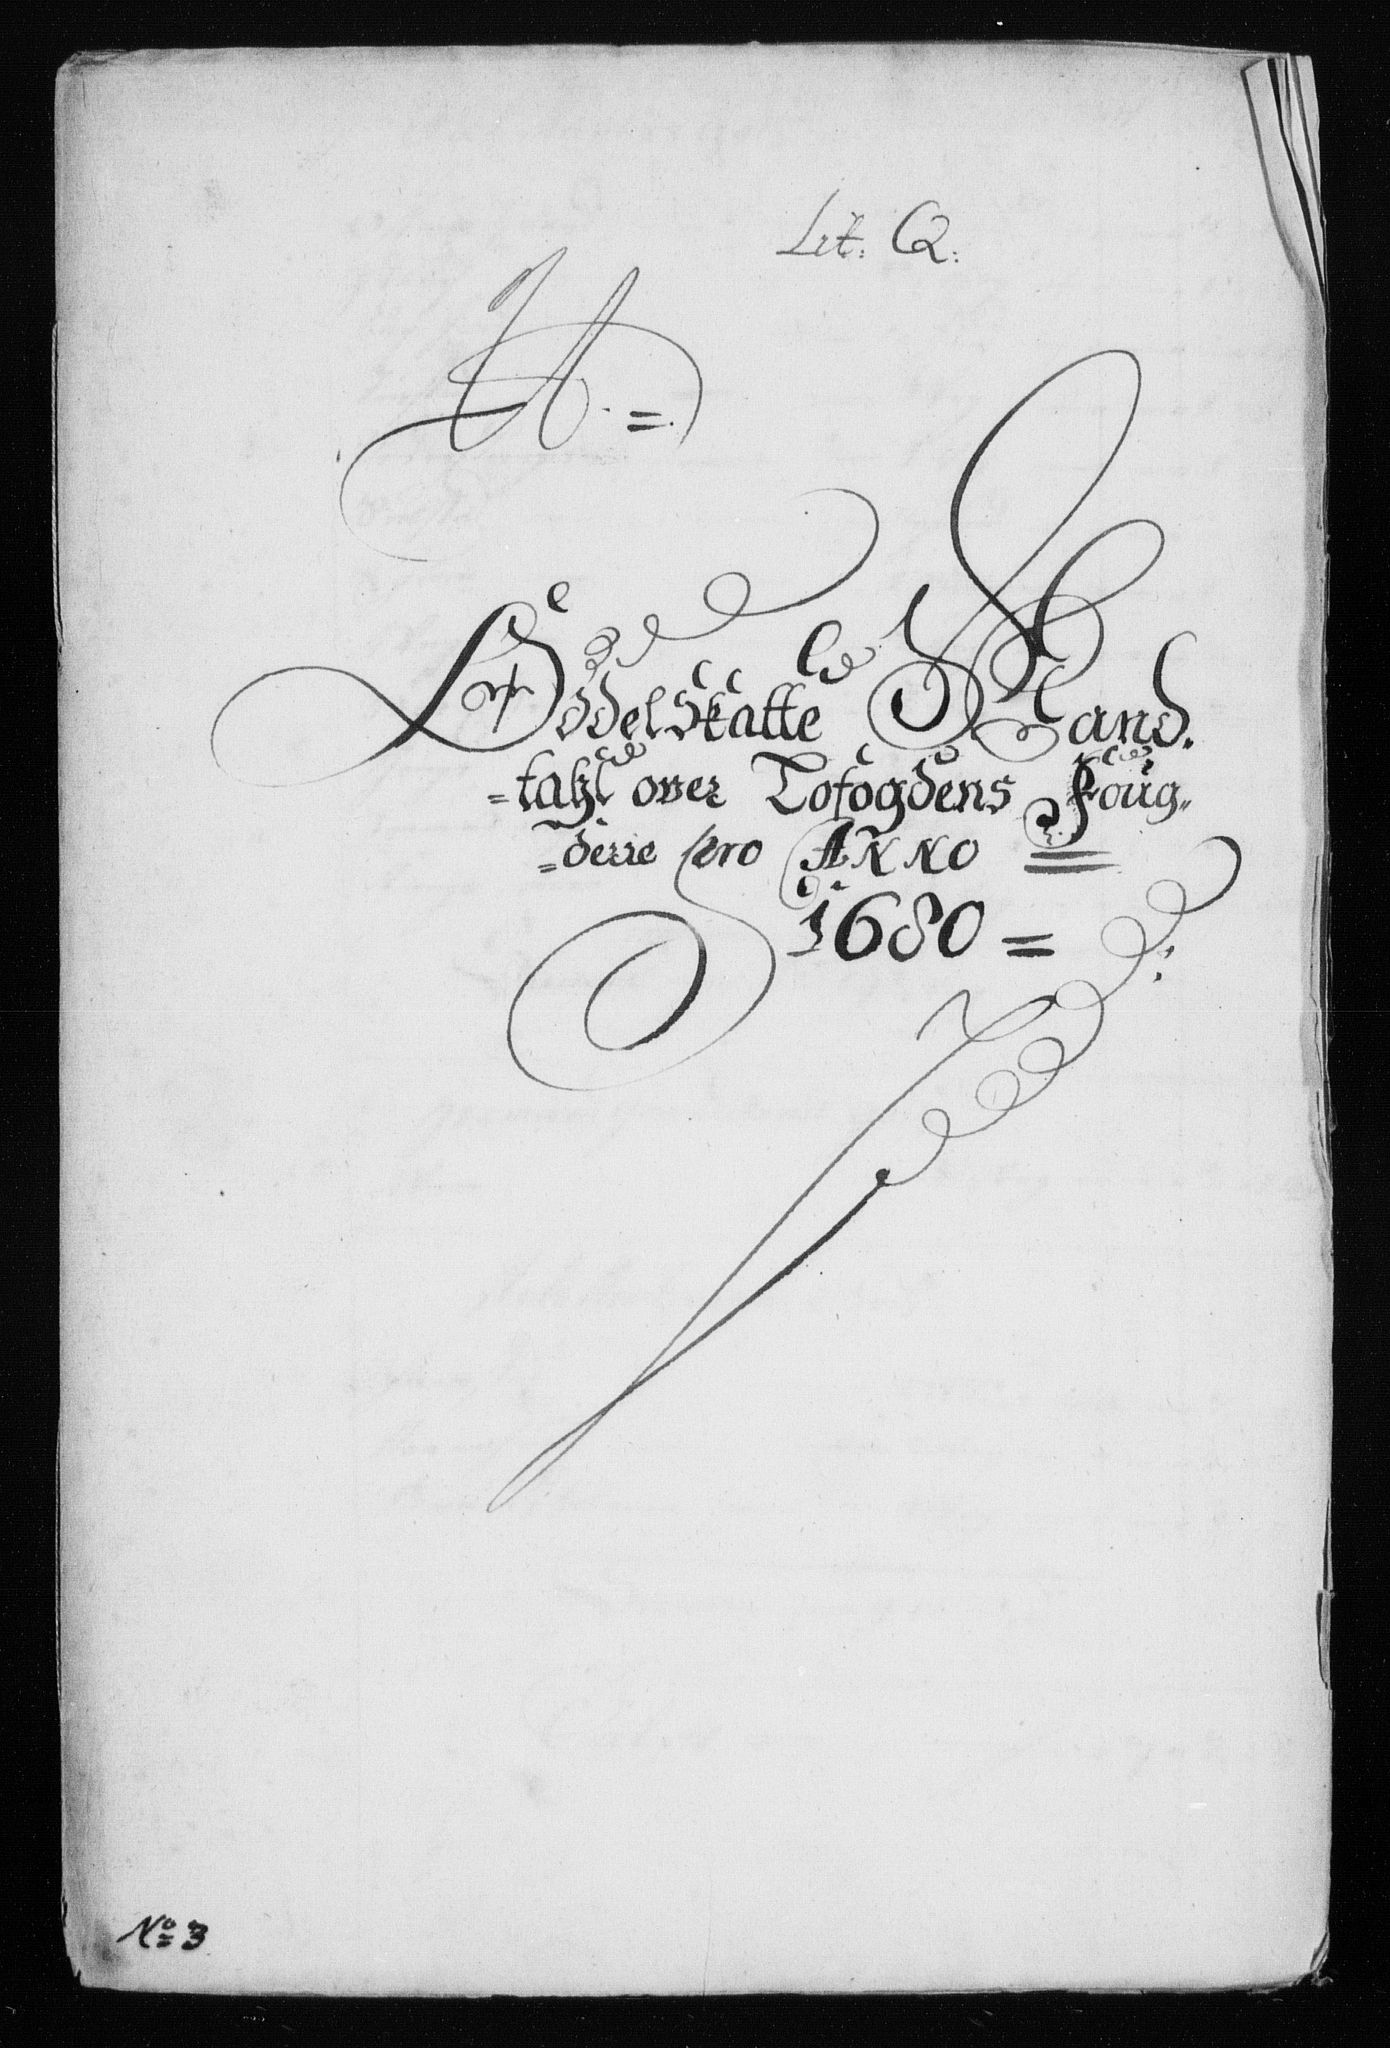 Lit: Q:
A. =.
Oddelskatte Mand.
=tahl over Lofogdens Foug=
=derie pro ANNO
1680 =
No= 3